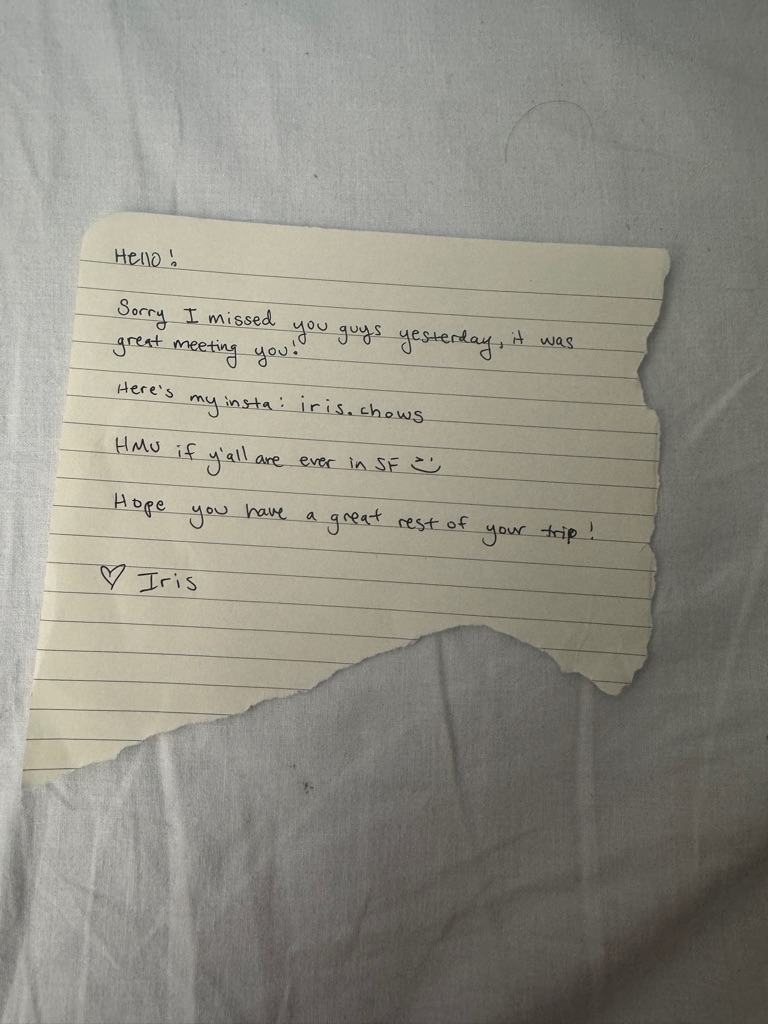 Hello!
Sorry I missed you guys yesterday, it was
great meeting you!
Here's my insta: iris.chows
HMU if y'all are ever in SF :)
Hope you have a great rest of your trip!
♡ Iris